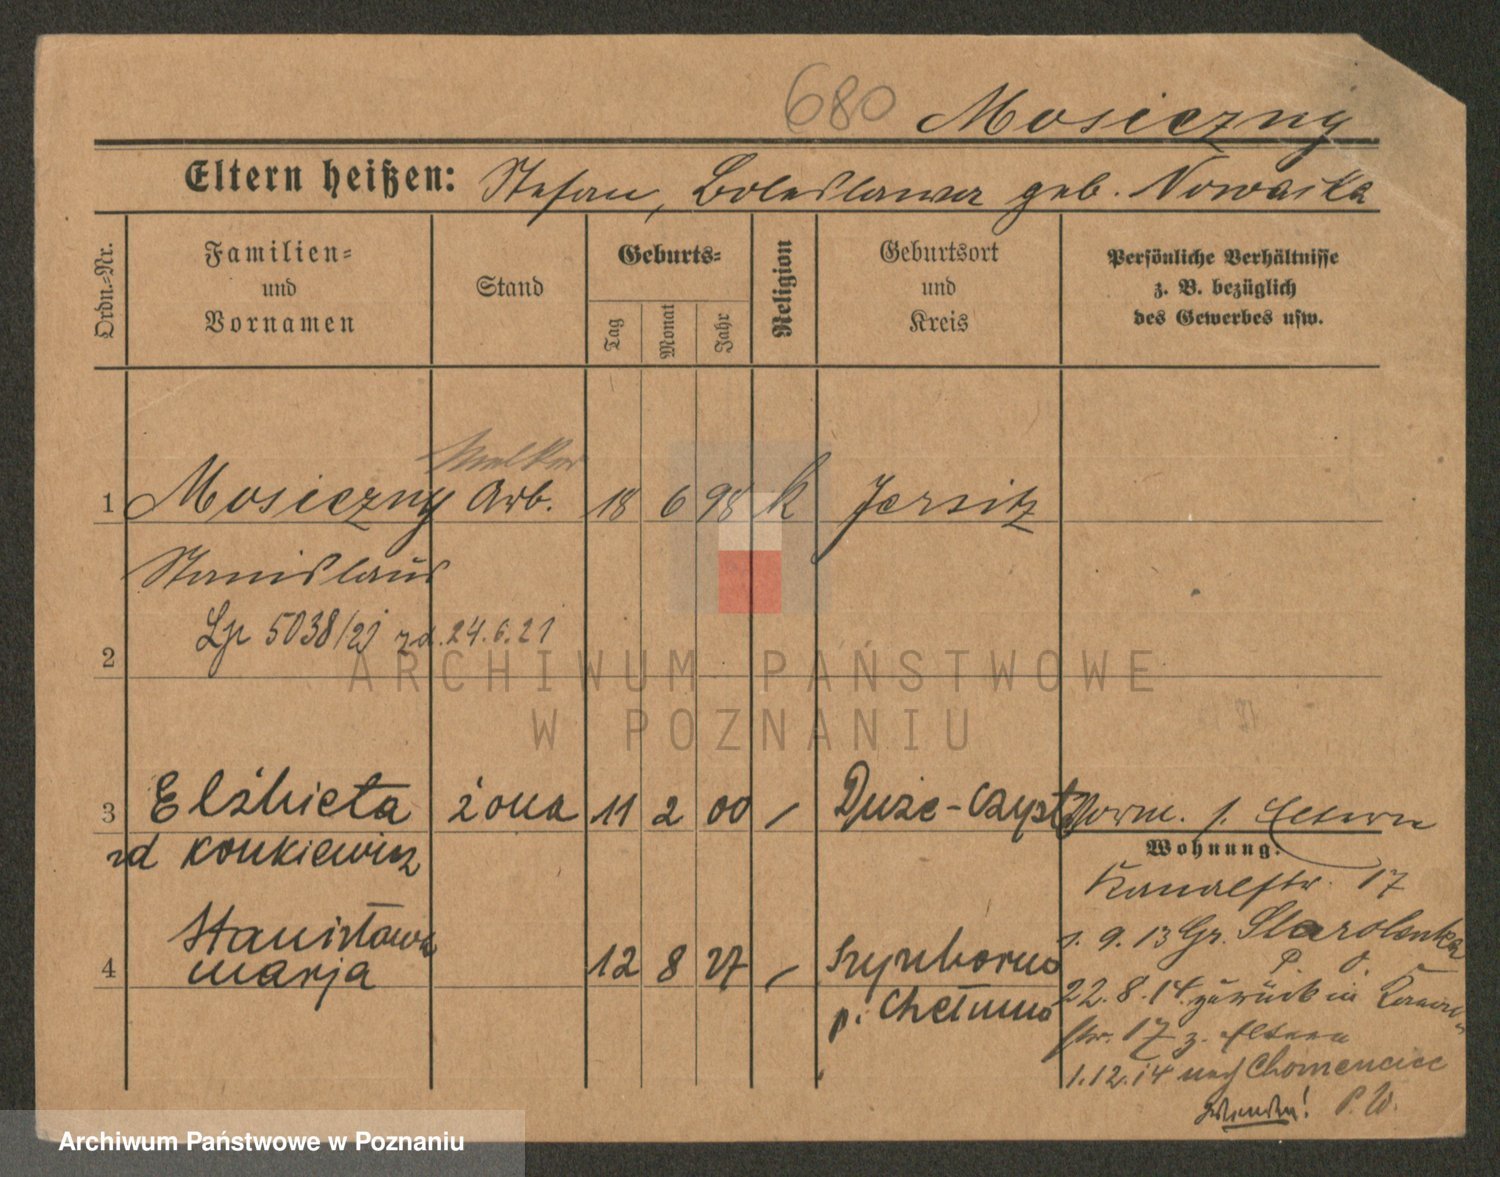 680 Mosiezny
Eltern heißen: Stefan, Boleslawa geb. Nowacka
Ordn.-Nr.
Familien-
und
Vornamen
Stand
Geburts-
Tag
Monat
Jahr
Religion
Geburtsort
und
Kreis
Persönliche Verhältnisse
z. B. bezüglich
des Gewerbes usw.
1 Mosiezny Arb. 18 6 98 k Jersitz
Stanislaus
Lp 5038/21 zd. 24.6.21
2
3 Elżbieta żona 11 2 00 / Duże-Czyste
zd Konkiewicz
Norm. s. Eltern
Wohnung:
Kanalstr. 17
1. 9. 13 Gr. Starolenka
P. O.
4 Stanisława
marja 12 8 27 / Szynborno
p. Chełmno
22. 8. 14. zurück in Kanal-
str. 17 z. Eltern
1.12.14 nach Chomencice
P. W.
wenden!
ARCHIWUM PAŃSTWOWE
W POZNANIU
Archiwum Państwowe w Poznaniu